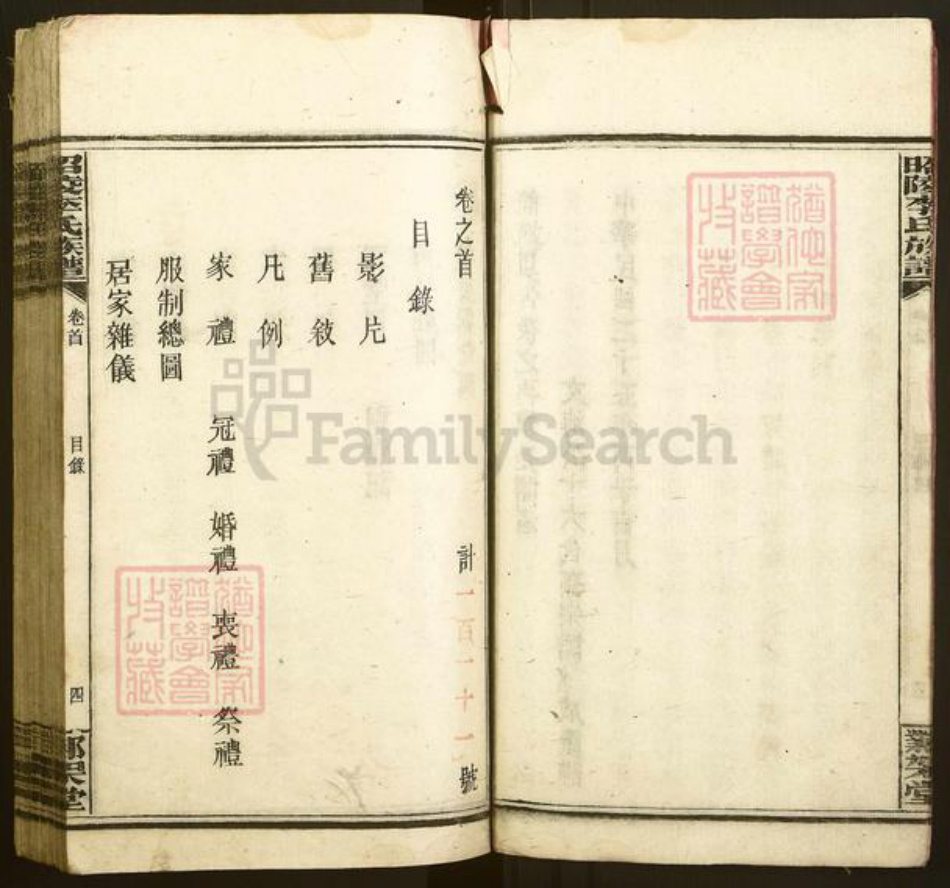 昭陵李氏族譜
卷之首 計一百一十一號
目錄
影片
舊敘
凡例
家禮 冠禮 婚禮 喪禮 祭禮
服制總圖
居家雜儀
昭陵李氏族譜 卷首 目錄 四
FamilySearch
譜學會
收藏
譜學會
收藏